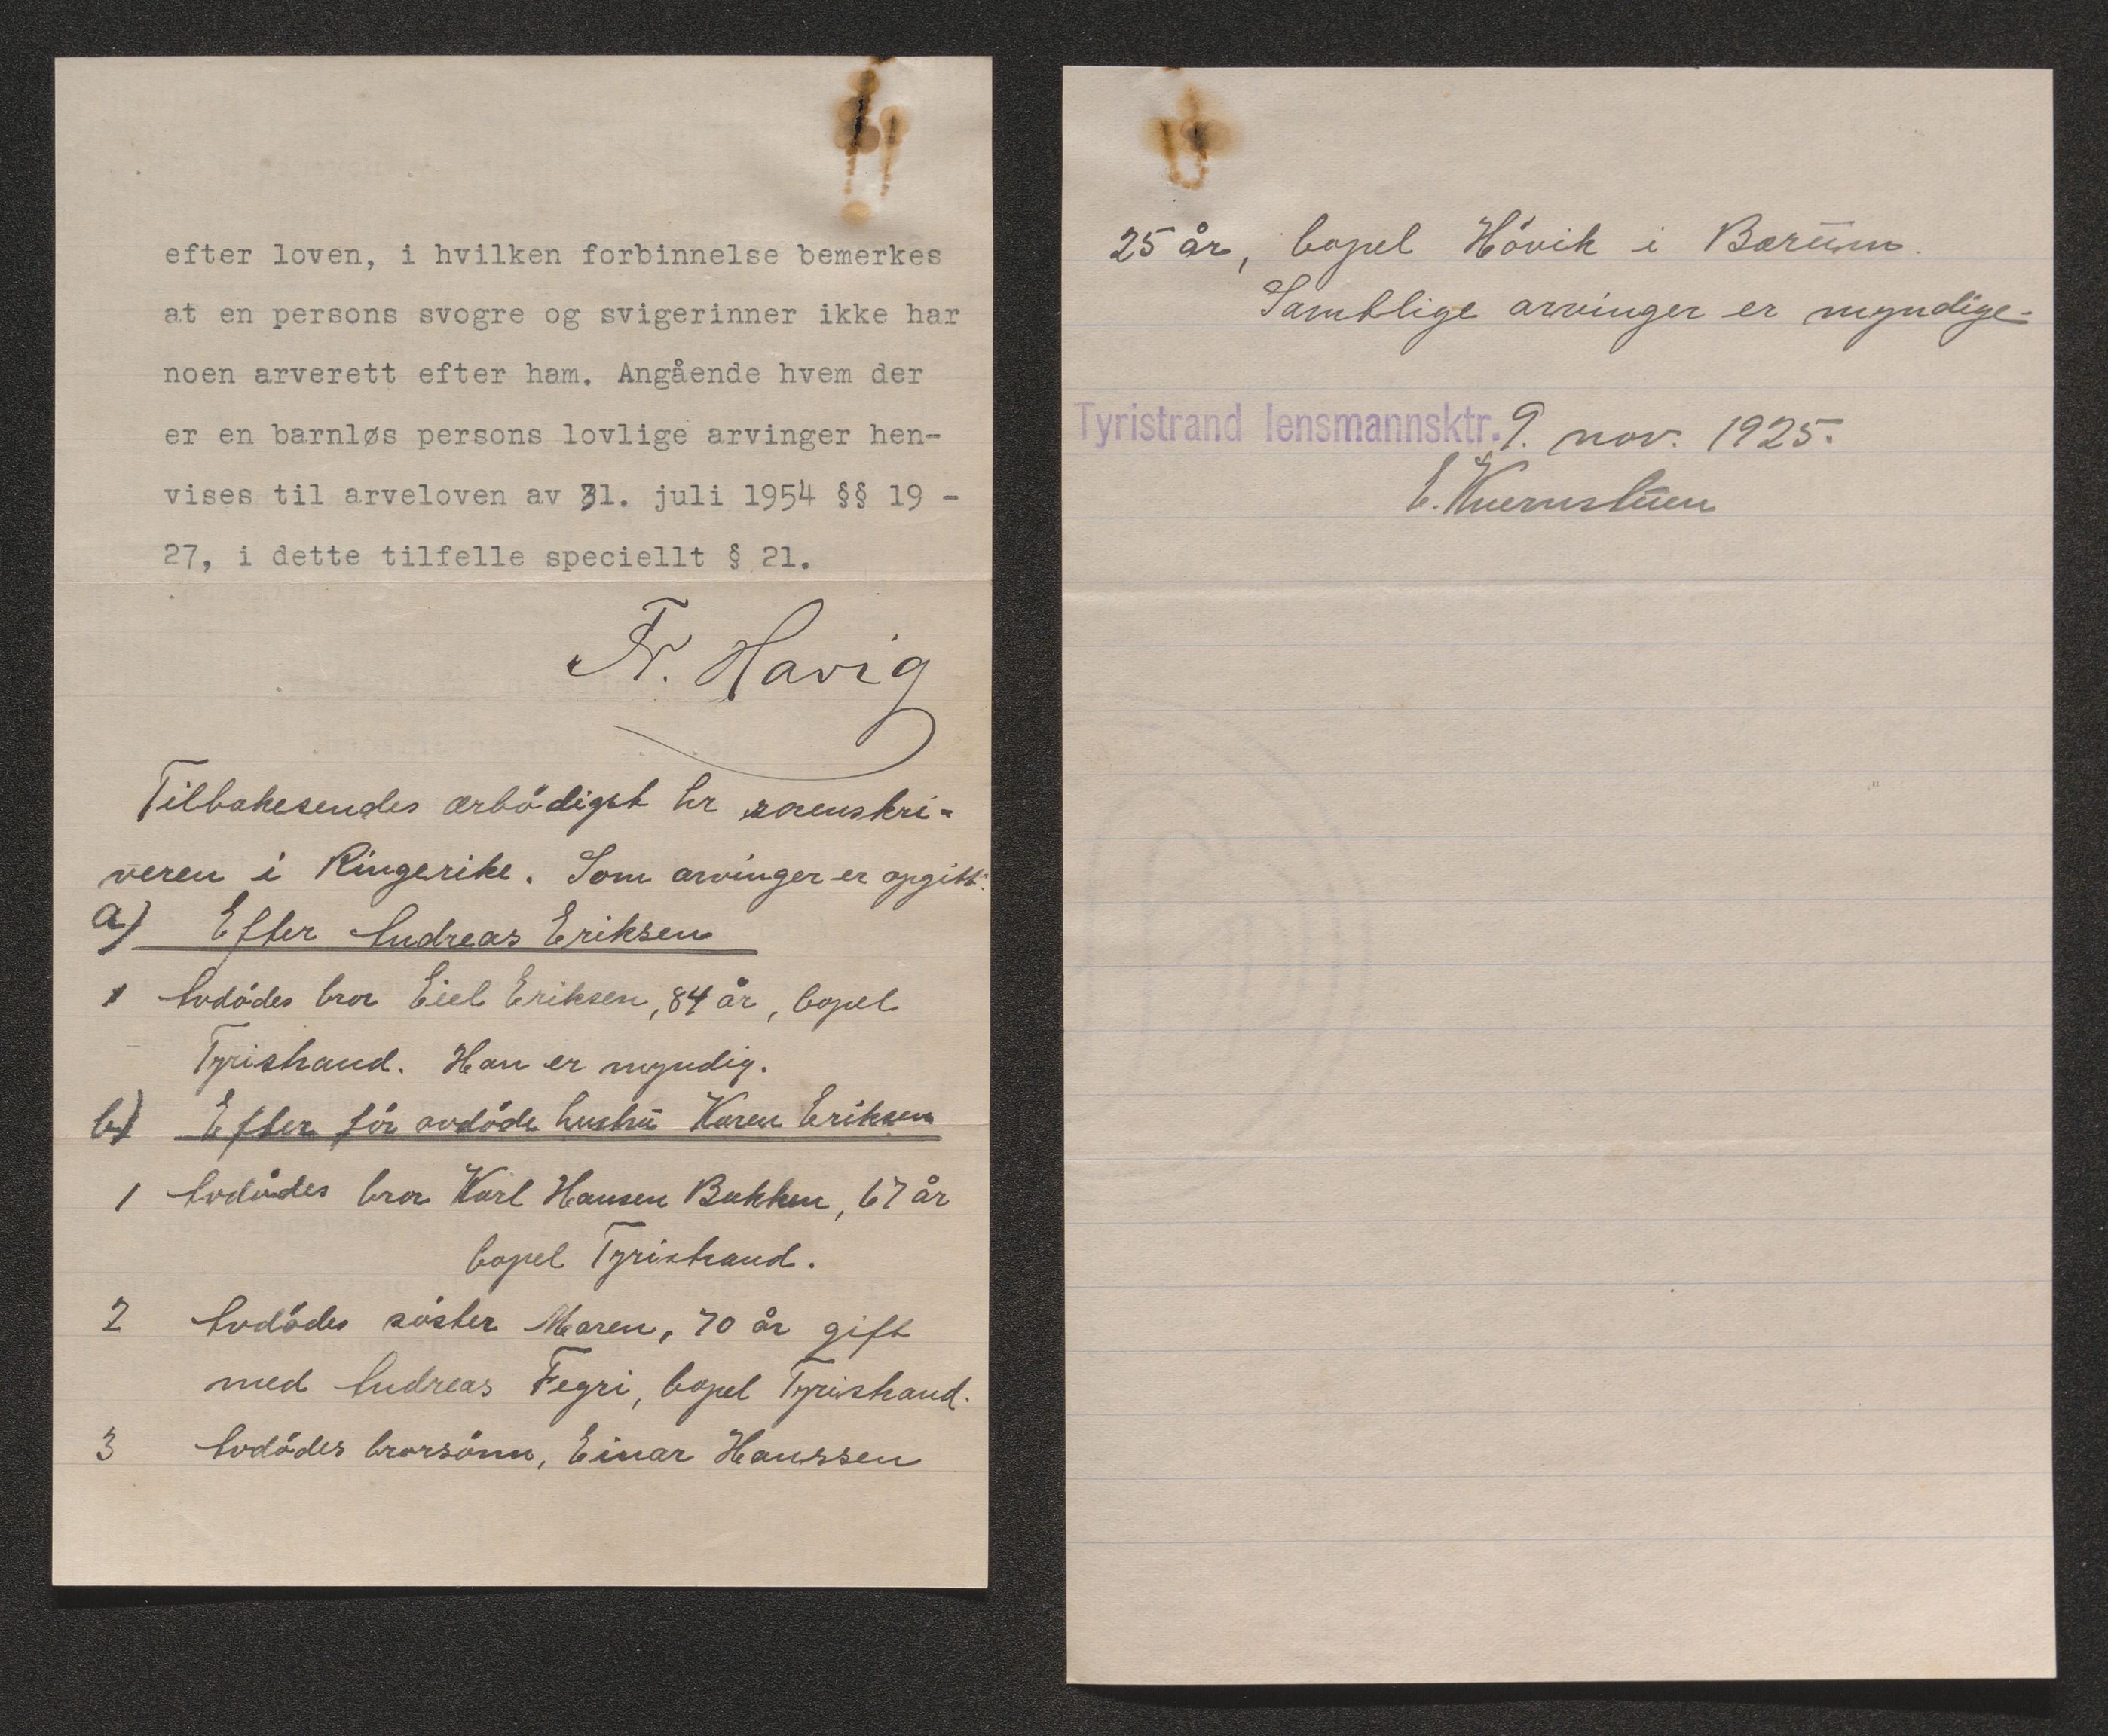 efter loven, i hvilken forbinnelse bemerkes
at en persons svogre og svigerinner ikke har
noen arverett efter ham. Angående hvem der
er en barnløs persons lovlige arvinger hen-
vises til arveloven av 31. juli 1954 §§ 19 -
27, i dette tilfelle speciellt § 21.
Fr. Havig
Tilbakesendes ærbödigst hr sorenskri-
veren i Ringerike. Som arvinger er opgitt:
a) Efter Andreas Eriksen
1 Avdödes bror Eiel Eriksen, 84 år, bopel
Tyristrand. Han er myndig.
b) Efter för avdöde hustru Karen Eriksen
1 Avdödes bror Karl Hansen Bakken, 67 år
bopel Tyristrand.
2 Avdödes söster Maren, 70 år gift
med Andreas Fegri, bopel Tyristrand.
3 Avdödes brorsönn, Einar Hanssen
25 år, bopel Hövik i Bærum.
Samtlige arvinger er myndige.
Tyristrand lensmannsktr. 9. nov. 1925.
E. Kvernstuen